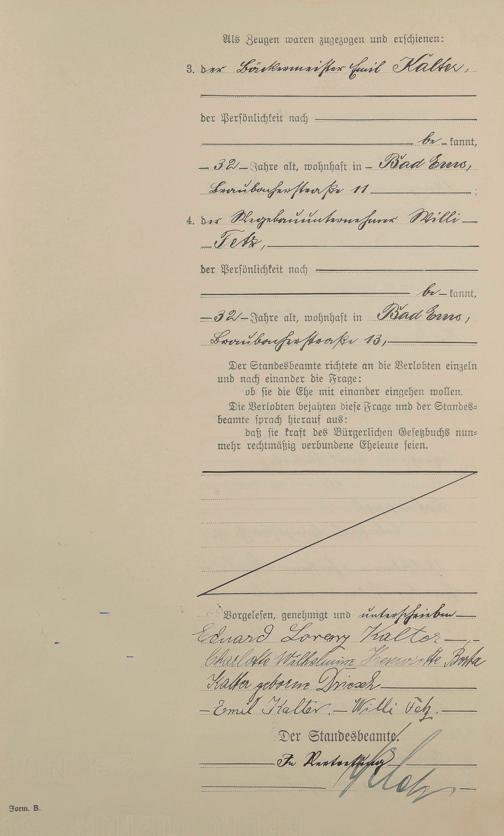 Als Zeugen waren zugezogen und erschienen:
3. der Bäckermeister Emil Kalter,
der Persönlichkeit nach
be-kannt,
- 32 - Jahre alt, wohnhaft in - Bad Ems,
Braubacherstraße 11 ;
4. der Wegebauunternehmer Willi -
- Fetz,
der Persönlichkeit nach
be-kannt,
- 32 - Jahre alt, wohnhaft in Bad Ems,
Braubacherstraße 13,
Der Standesbeamte richtete an die Verlobten einzeln
und nach einander die Frage:
ob sie die Ehe mit einander eingehen wollen.
Die Verlobten bejahten diese Frage und der Standes-
beamte sprach hierauf aus:
daß sie kraft des Bürgerlichen Gesetzbuchs nun-
mehr rechtmäßig verbundene Eheleute seien.
Vorgelesen, genehmigt und unterschrieben
Eduard Lorenz Kalter
Charlotte Wilhelmine Henriette Berta
Kalter geborne Driesch
- Emil Kalter. - Willi Fetz.
Der Standesbeamte.
In Vertretung
Form. B.